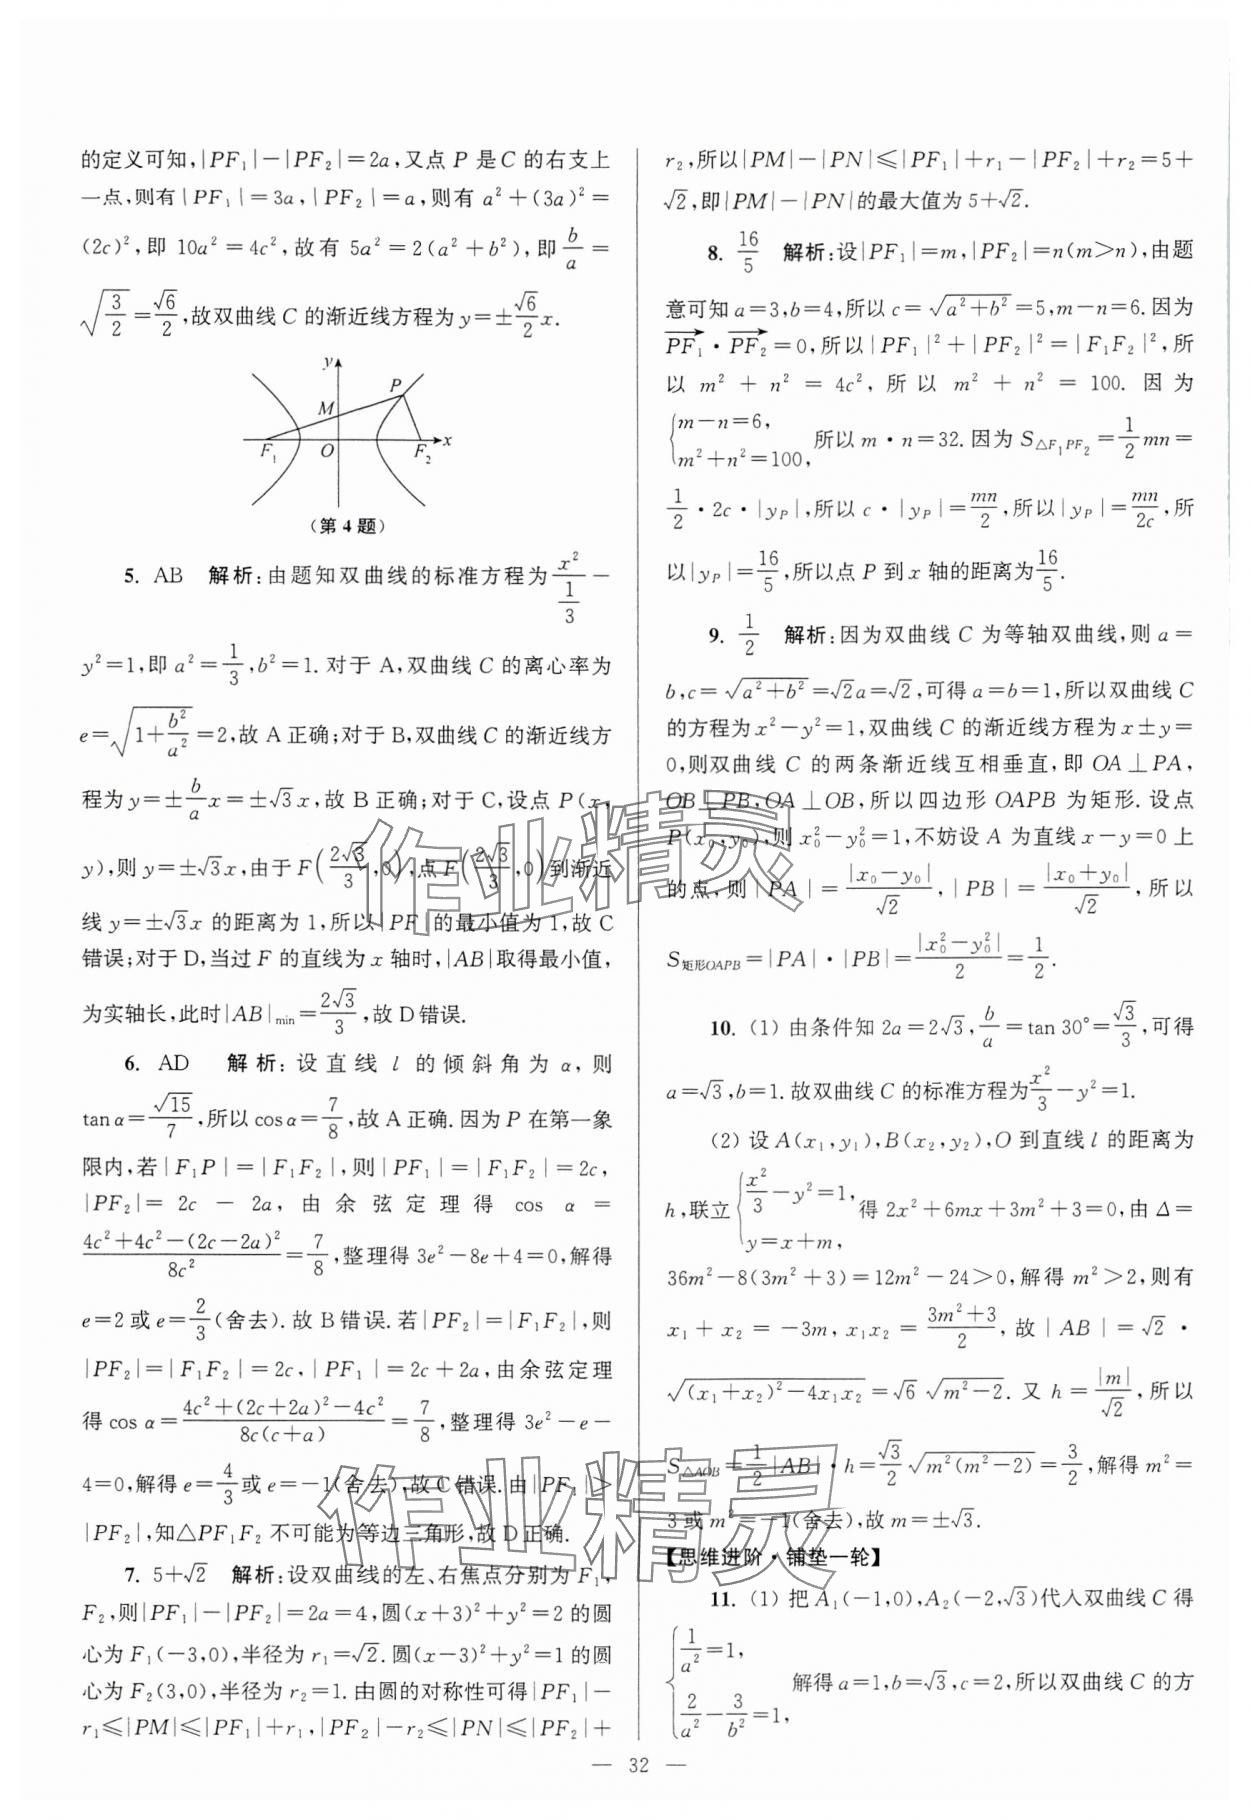 的定义可知,|PF₁|−|PF₂|=2a,又点 P 是 C 的右支上
一点,则有|PF₁|=3a,|PF₂|=a,则有 a²+(3a)²=
(2c)²,即 10a²=4c²,故有 5a²=2(a²+b²),即 b/a =
√(3/2)=√6/2,故双曲线 C 的渐近线方程为 y=±√6/2 x.
y
P
M
F₁ O F₂ x
(第 4 题)
5. AB 解析:由题知双曲线的标准方程为 x²/(1/3) −
y²=1,即 a²=1/3,b²=1. 对于 A,双曲线 C 的离心率为
e=√(1+b²/a²)=2,故 A 正确;对于 B,双曲线 C 的渐近线方
程为 y=±b/a x=±√3x,故 B 正确;对于 C,设点 P(x,
y),则 y=±√3x,由于 F(2√3/3,0),点 F(2√3/3,0)到渐近
线 y=±√3x 的距离为 1,所以|PF|的最小值为 1,故 C
错误;对于 D,当过 F 的直线为 x 轴时,|AB|取得最小值,
为实轴长,此时|AB|min=2√3/3,故 D 错误.
6. AD 解析:设直线 l 的倾斜角为 α,则
tan α=√15/7,所以 cos α=7/8,故 A 正确. 因为 P 在第一象
限内,若|F₁P|=|F₁F₂|,则|PF₁|=|F₁F₂|=2c,
|PF₂|=2c−2a,由余弦定理得 cos α =
(4c²+4c²−(2c−2a)²)/8c²=7/8,整理得 3e²−8e+4=0,解得
e=2 或 e=2/3(舍去). 故 B 错误. 若|PF₂|=|F₁F₂|,则
|PF₂|=|F₁F₂|=2c,|PF₁|=2c+2a,由余弦定理
得 cos α=(4c²+(2c+2a)²−4c²)/8c(c+a)=7/8,整理得 3e²−e−
4=0,解得 e=4/3 或 e=−1(舍去),故 C 错误. 由|PF₁|>
|PF₂|,知△PF₁F₂ 不可能为等边三角形,故 D 正确.
7. 5+√2 解析:设双曲线的左、右焦点分别为 F₁,
F₂,则|PF₁|−|PF₂|=2a=4,圆(x+3)²+y²=2 的圆
心为 F₁(−3,0),半径为 r₁=√2. 圆(x−3)²+y²=1 的圆
心为 F₂(3,0),半径为 r₂=1. 由圆的对称性可得|PF₁|−
r₁≤|PM|≤|PF₁|+r₁,|PF₂|−r₂≤|PN|≤|PF₂|+
r₂,所以|PM|−|PN|≤|PF₁|+r₁−|PF₂|+r₂=5+
√2,即|PM|−|PN|的最大值为 5+√2.
8. 16/5 解析:设|PF₁|=m,|PF₂|=n(m>n),由题
意可知 a=3,b=4,所以 c=√(a²+b²)=5,m−n=6. 因为
PF₁→·PF₂→=0,所以|PF₁|²+|PF₂|²=|F₁F₂|²,所
以 m²+n²=4c²,所以 m²+n²=100. 因为
{m−n=6, m²+n²=100, 所以 m·n=32. 因为 S△F₁PF₂=1/2 mn=
1/2·2c·|yP|,所以 c·|yP|=mn/2,所以|yP|=mn/2c,所
以|yP|=16/5,所以点 P 到 x 轴的距离为16/5.
9. 1/2 解析:因为双曲线 C 为等轴双曲线,则 a=
b,c=√(a²+b²)=√2a=√2,可得 a=b=1,所以双曲线 C
的方程为 x²−y²=1,双曲线 C 的渐近线方程为 x±y=
0,则双曲线 C 的两条渐近线互相垂直,即 OA⊥PA,
OB⊥PB,OA⊥OB,所以四边形 OAPB 为矩形. 设点
P(x₀,y₀),则 x₀²−y₀²=1,不妨设 A 为直线 x−y=0 上
的点,则|PA|=|x₀−y₀|/√2,|PB|=|x₀+y₀|/√2,所以
S矩形OAPB=|PA|·|PB|=|x₀²−y₀²|/2=1/2.
10. (1) 由条件知 2a=2√3,b/a=tan 30°=√3/3,可得
a=√3,b=1. 故双曲线 C 的标准方程为x²/3−y²=1.
(2) 设 A(x₁,y₁),B(x₂,y₂),O 到直线 l 的距离为
h,联立{x²/3−y²=1, y=x+m, 得 2x²+6mx+3m²+3=0,由 Δ=
36m²−8(3m²+3)=12m²−24>0,解得 m²>2,则有
x₁+x₂=−3m,x₁x₂=(3m²+3)/2,故|AB|=√2·
√((x₁+x₂)²−4x₁x₂)=√6 √(m²−2). 又 h=|m|/√2,所以
S△AOB=1/2|AB|·h=√3/2 √(m²(m²−2))=3/2,解得 m²=
3 或 m²=−1(舍去),故 m=±√3.
【思维进阶·铺垫一轮】
11. (1) 把 A₁(−1,0),A₂(−2,√3)代入双曲线 C 得
{1/a²=1, 2/a²−3/b²=1, 解得 a=1,b=√3,c=2,所以双曲线 C 的方
— 32 —
作业精灵
作业精灵